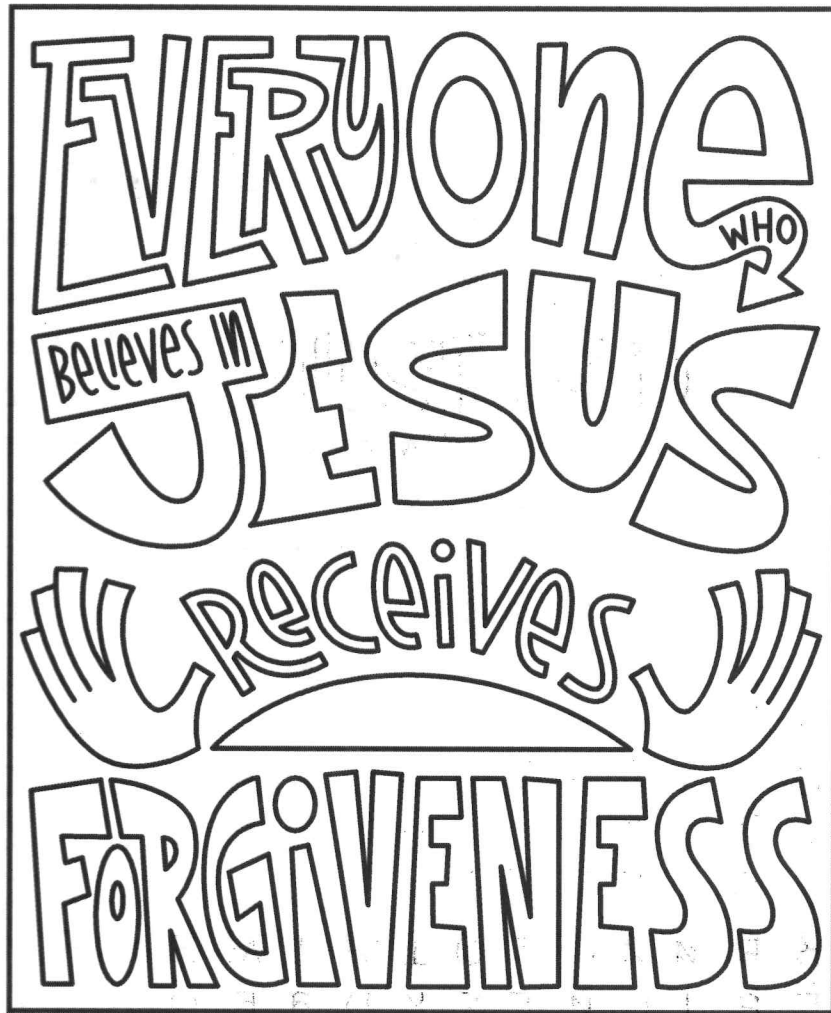 EVERYONE
WHO
BELIEVES IN
JESUS
RECEIVES
FORGIVENESS